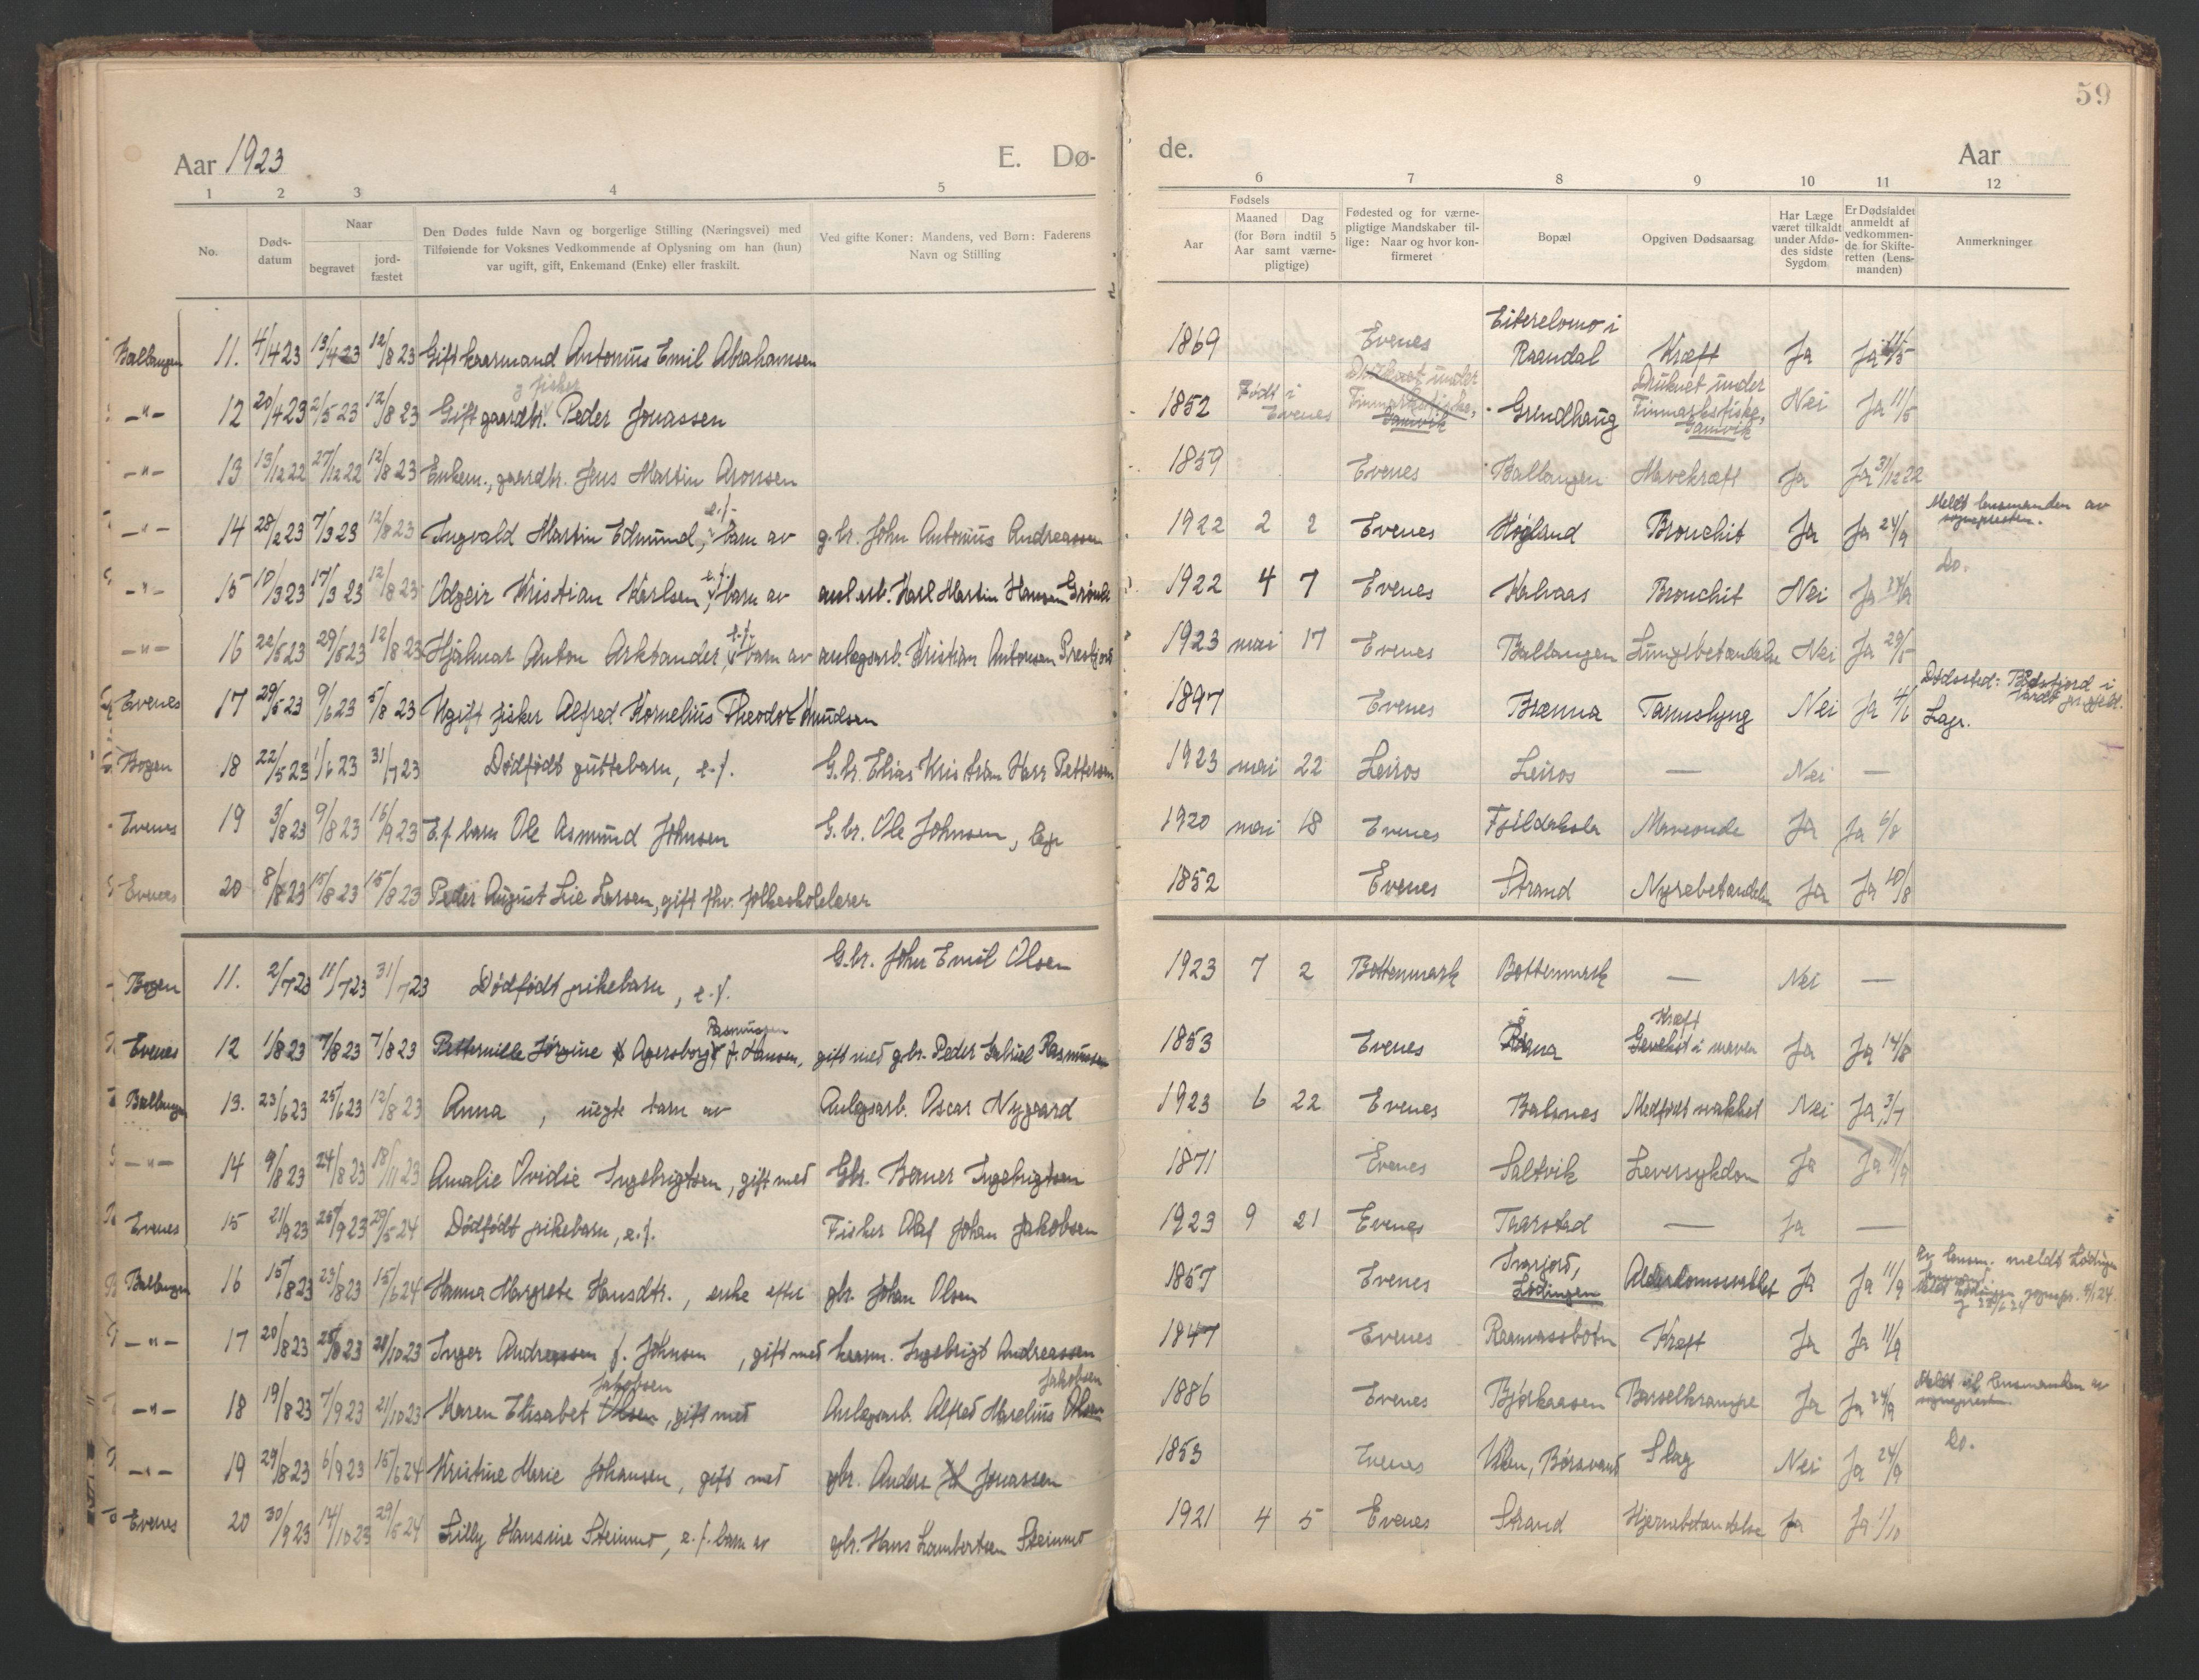 59
Aar 1923 E. Dø- de. Aar
1 2 3 4 5 6 7 8 9 10 11 12
No.
Døds-
datum
Naar
begravet
jord-
fæstet
Den Dødes fulde Navn og borgerlige Stilling (Næringsvei) med
Tilføiende for Voksnes Vedkommende af Oplysning om han (hun)
var ugift, gift, Enkemand (Enke) eller fraskilt.
Ved gifte Koner: Mandens, ved Børn: Faderens
Navn og Stilling
Fødsels
Aar
Maaned Dag
(for Børn indtil 5
Aar samt værne-
pligtige)
Fødested og for værne-
pligtige Mandskaber til-
lige: Naar og hvor kon-
firmeret
Bopæl
Opgiven Dødsaarsag
Har Læge
været tilkaldt
under Afdø-
des sidste
Sygdom
Er Dødsfaldet
anmeldt af
vedkommen-
de for Skifte-
retten (Lens-
manden)
Anmerkninger
Ballangen 11. 4/4 23 13/4 23 12/8 23 Gift kaarmand Antonius Emil Abrahamsen 1869 Evenes Raandal Kræft Ja Ja
-"- 12 20/4 23 2/5 23 12/8 23 Gift gaardbr. g fisker Peder Jonassen 1852 Født i Evenes Grundhaug Druknet under Finmarksfiske, Gamvik Nei Ja 11/5
-"- 13 13/12 22 27/12 22 12/8 23 Enkem., gaardbr. Jens Martin Aronsen 1859 Evenes Ballangen Mavekræft Ja Ja 31/12 22
-"- 14 28/2 23 7/3 23 12/8 23 Ingvald Martin Edmund, e.f. barn av g.br. John Antonius Andreassen 1922 2 2 Evenes Høgland Bronchit Ja Ja 24/9 Meldt lensmanden av sognepresten.
-"- 15 10/3 23 17/3 23 12/8 23 Odgeir Kristian Karlsen, e.f. barn av anl.arb. Karl Martin Hansen 1922 4 7 Evenes Bronchit Nei Ja 24/9 Do.
-"- 16 22/5 23 29/5 23 12/8 23 Hjalmar Anton Arktander, e.f. barn av anlegsarb. Kristian Antonsen 1923 mai 17 Evenes Ballangen Lungebetændelse Nei Ja 29/5
Evenes 17 29/5 23 9/6 23 5/8 23 Ugift fisker Alfred Kornelius Theodor Knudsen 1897 Evenes Brenna Tarmslyng Nei Ja 4/6 Dødssted:
Bogen 18 22/5 23 1/6 23 31/7 23 Dødfødt guttebarn, e.f. G.br. Elias Kristian Harr Pettersen 1923 mai 22 Leiros Leiros — Nei —
Evenes 19 3/8 23 9/8 23 16/9 23 E.f barn Ole Asmund Johnsen G.br. Ole Johnsen, 1920 mai 18 Evenes Maveonde Ja Ja 6/8
Evenes 20 8/8 23 15/8 23 15/8 23 Peder August Lie Larsen, gift fhv. folkeskolelærer 1852 Evenes Strand Nyrebetændelse Ja Ja 10/8
Bogen 11. 2/7 23 11/7 23 31/7 23 Dødfødt pikebarn, e.f. G.br. Johan Emil Olsen 1923 7 2 Bottenmark Bottenmark — Nei —
Evenes 12 1/8 23 7/8 23 7/8 23 Petternille Jørgine Agersborg Rasmussen f. Hansen, gift med gbr. Peder Gabriel Rasmussen 1853 Evenes Kræft i maven Ja Ja 14/8
Ballangen 13. 23/6 23 25/6 23 12/8 23 Anna, uegte barn av Anlegsarb. Oscar Nygaard 1923 6 22 Evenes Balsnes Medfødt svakhet Nei Ja, 3/7
-"- 14 9/8 23 24/8 23 18/11 23 Amalie Ovidie Ingebrigtsen, gift med Gbr. Berner Ingebrigtsen 1871 Evenes Saltvik Leversykdom Ja Ja 11/9
Evenes 15 21/9 23 25/9 23 29/5 24 Dødfødt pikebarn, e.f. Fisker Olaf Johan Jakobsen 1923 9 21 Evenes Taarstad — Ja —
Ballangen 16 15/8 23 23/8 23 15/6 24 Hanna Margrete Hansdtr., enke efter gbr. Johan Olsen 1857 Evenes Lødingen Alderdomssvakhet Ja Ja 11/9
-"- 17 20/8 23 21/10 23 Inger Andreassen f. Johnsen, gift med kaarm. Ingebrigt Andreassen 1847 Evenes Kræft Ja Ja 11/9
-"- 18 19/8 23 7/9 23 21/10 23 Karen Elisabet Olsen Jakobsen, gift med Anlegsarb. Alfred Marelius Olsen Jakobsen 1886 Evenes Bjørkaasen Barselkrampe Ja Ja 24/9 Meldt til lensmanden av sognepresten.
-"- 19 29/8 23 6/9 23 15/6 24 Kristine Marie Johansen, gift med gbr. Anders Jonassen 1853 Evenes Slag Nei Ja 24/9 Do.
Evenes 20 30/9 23 14/10 23 29/5 24 Lilly Hansine Steinmo, e.f. barn av gbr. Hans Lambertsen Steinmo 1921 4 5 Evenes Strand Hjernebetændelse Ja Ja 1/10